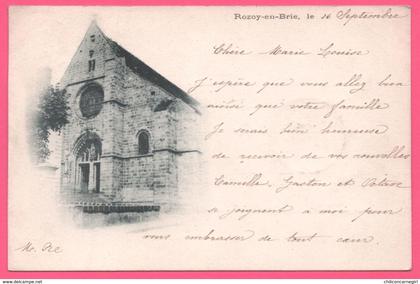 Rozoy-en-Brie, le 16 Septembre
Chère Marie Louise
J'espère que vous allez bien
ainsi que votre famille
Je serais bien heureuse
de recevoir de vos nouvelles
Camille, Gaston et
se joignent a moi pour
vous embrasser de tout cœur.